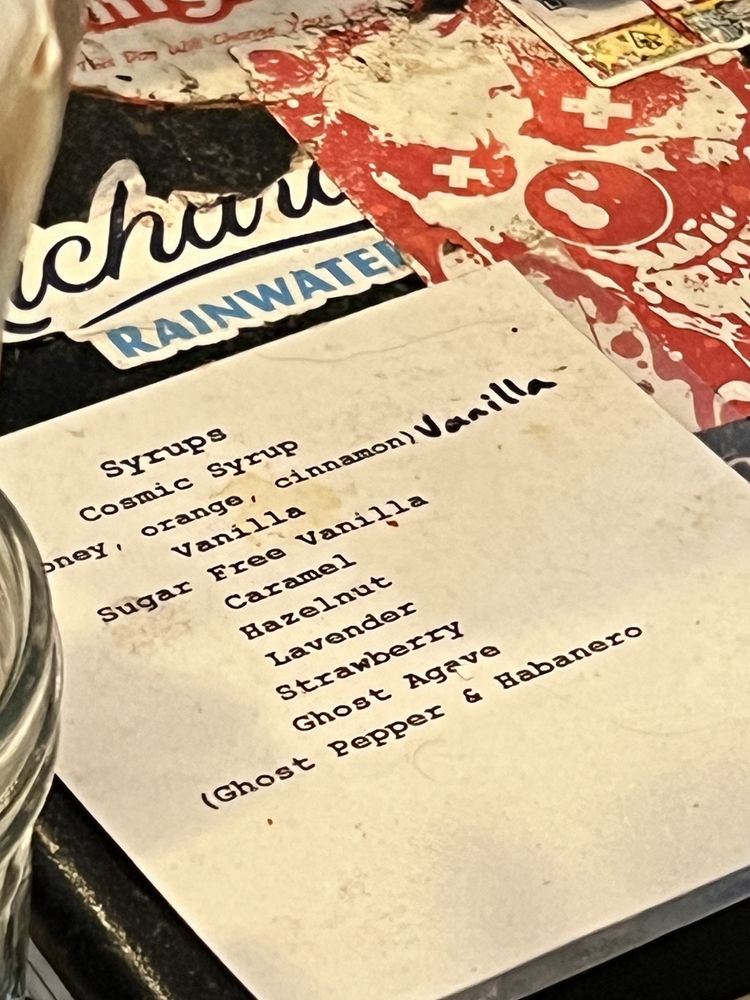 That Dog Will Change Your Life
RAINWATER
Syrups
Cosmic Syrup
oney, orange, cinnamon) Vanilla
Vanilla
Sugar Free Vanilla
Caramel
Hazelnut
Lavender
Strawberry
Ghost Agave
(Ghost Pepper & Habanero